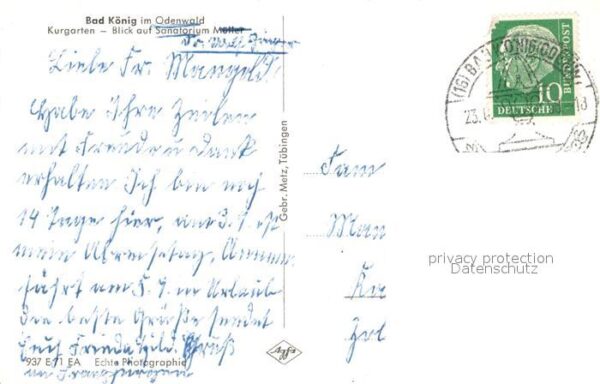 Bad König im Odenwald
Kurgarten – Blick auf Sanatorium Müller
Liebe Fr. Mangold!
Habe Ihre Zeilen
mit Freude u Dank
erhalten Ich bin noch
14 Tage hier, am 3. 9. ist
mein Abreisetag,
fährt am 5. 9. in Urlaub
die beste Grüße sendet
Euch Frieda Gruß
Gebr. Metz, Tübingen
937 E 71 EA Echte Photographie
Fam
Man
Ka
(16) BAD KÖNIG (ODENW)
23.
-18
10
DEUTSCHE
BUNDESPOST
privacy protection
Datenschutz